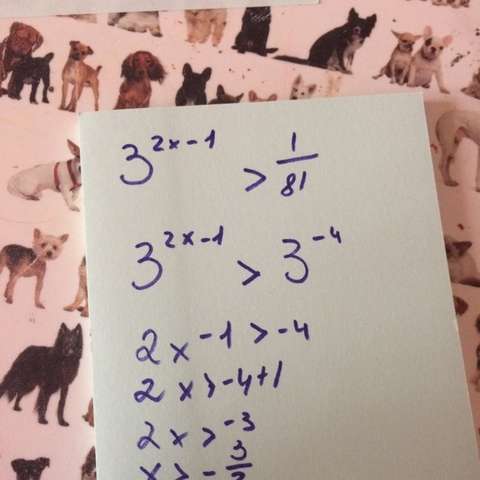 3^{2x-1} > 1/81
3^{2x-1} > 3^{-4}
2x -1 > -4
2x > -4+1
2x > -3
x > - 3/2